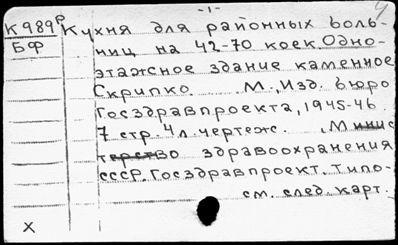 -1-
К989р Кухня для районных боль-
БФ ниц на 42-70 коек. Одно-
этажное здание каменное
Скрипко. М., Изд. бюро
Госздравпроекта, 1945-46.
7 стр. 4 л. чертеж. (Минис
терство здравоохранения
СССР. Госздравпроект. Типо-
см. след. карт.
X